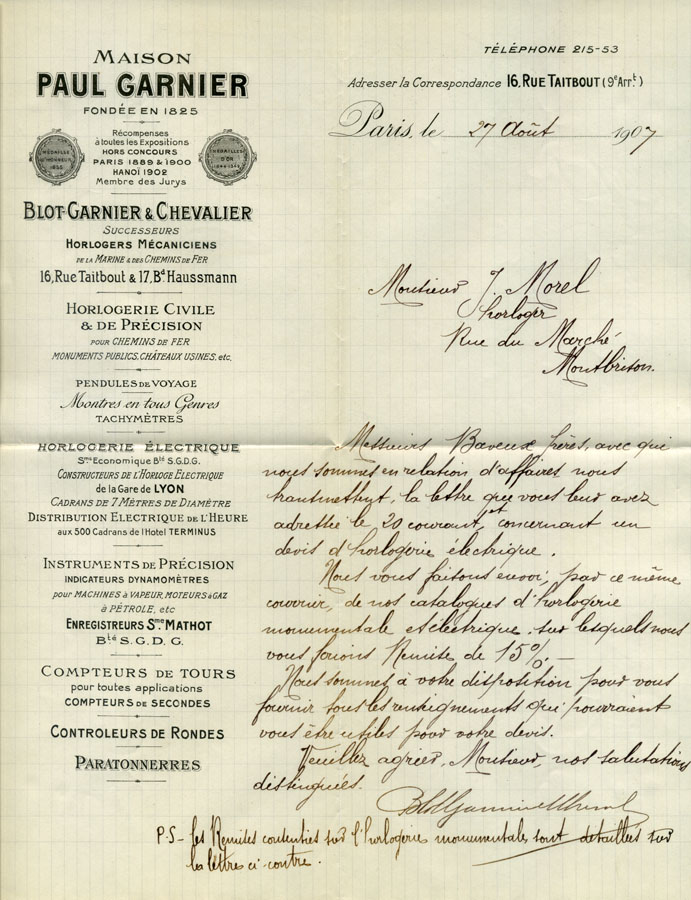 MAISON
PAUL GARNIER
FONDÉE EN 1825
Récompenses
à toutes les Expositions
HORS CONCOURS
PARIS 1889 & 1900
HANOÏ 1902
Membre des Jurys
MÉDAILLE
MÉDAILLES
D'OR
BLOT-GARNIER & CHEVALIER
SUCCESSEURS
HORLOGERS MÉCANICIENS
DE LA MARINE & DES CHEMINS DE FER
16, Rue Taitbout & 17, Bd. Haussmann
HORLOGERIE CIVILE
& DE PRÉCISION
POUR CHEMINS DE FER
MONUMENTS PUBLICS, CHÂTEAUX USINES, etc.
PENDULES DE VOYAGE
Montres en tous Genres
TACHYMÈTRES
HORLOGERIE ÉLECTRIQUE
Sme Economique Bté S.G.D.G.
CONSTRUCTEURS DE L'HORLOGE ELECTRIQUE
de la Gare de LYON
CADRANS DE 7 MÈTRES DE DIAMÈTRE
DISTRIBUTION ELECTRIQUE DE L'HEURE
aux 500 Cadrans de l'Hotel TERMINUS
INSTRUMENTS DE PRÉCISION
INDICATEURS DYNAMOMÈTRES
pour MACHINES À VAPEUR, MOTEURS À GAZ
à PÉTROLE, etc
ENREGISTREURS Sme MATHOT
Bté S.G.D.G.
COMPTEURS DE TOURS
pour toutes applications
COMPTEURS DE SECONDES
CONTROLEURS DE RONDES
PARATONNERRES
TÉLÉPHONE 215-53
Adresser la Correspondance 16, RUE TAITBOUT (9e Arrt)
Paris, le 27 Août 1907
Monsieur J. Morel
horloger
Rue du Marché
Montbrison.
Messieurs Baveux frères, avec qui
nous sommes en relation d'affaires nous
transmettent, la lettre que vous leur avez
adressée le 20 courant, et concernant un
devis d'horlogerie électrique.
Nous vous faisons envoi, par ce même
courrier, de nos catalogues d'horlogerie
monumentale et électrique, sur lesquels nous
vous ferions Remise de 15%.—
Nous sommes à votre disposition pour vous
fournir tous les renseignements qui pourraient
vous être utiles pour votre devis.
Veuillez agréer, Monsieur, nos salutations
distinguées.
P.S – les Remises consenties sur l'horlogerie monumentale sont détaillées sur
la lettre ci contre.